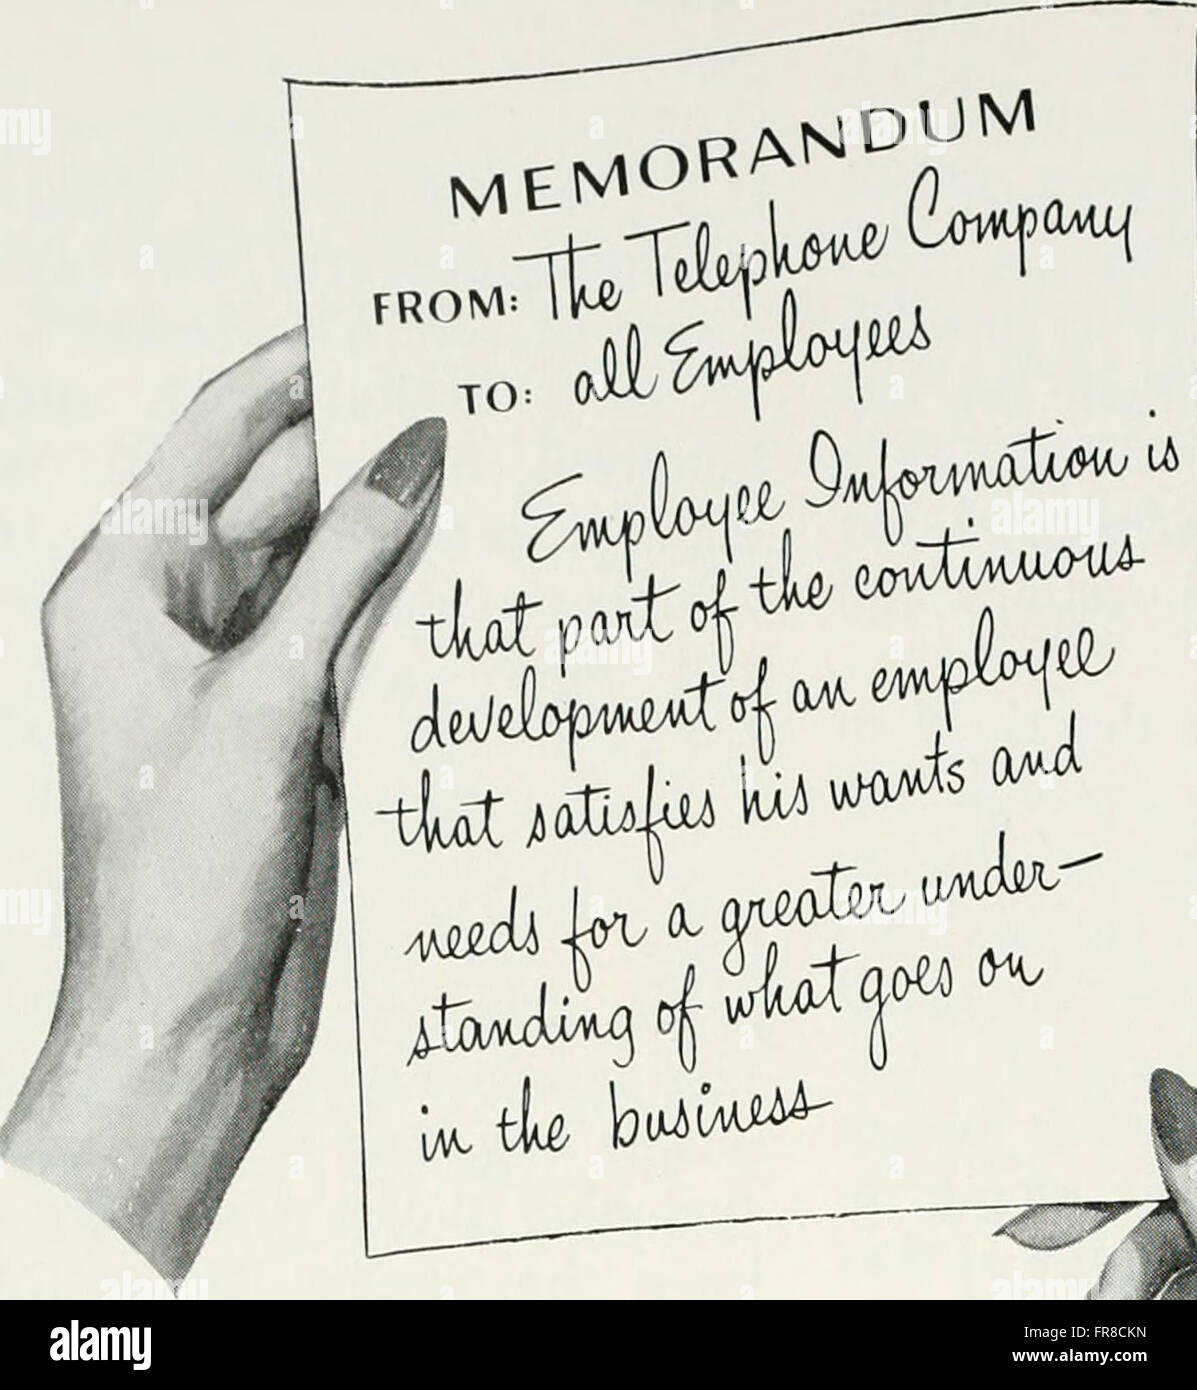 MEMORANDUM
FROM: The Telephone Company
TO: all Employees
Employee Information is
that part of the continuous
development of an employee
that satisfies his wants and
needs for a greater under—
standing of what goes on
in the business
alamy
Image ID: FR8CKN
www.alamy.com